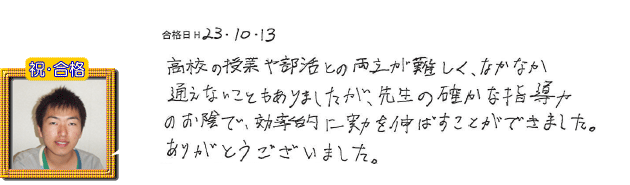 合格日 H 23・10・13
祝・合格
高校の授業や部活との両立が難しく、なかなか
通えないこともありましたが、先生の確かな指導力
のお陰で、効率的に実力を伸ばすことができました。
ありがとうございました。